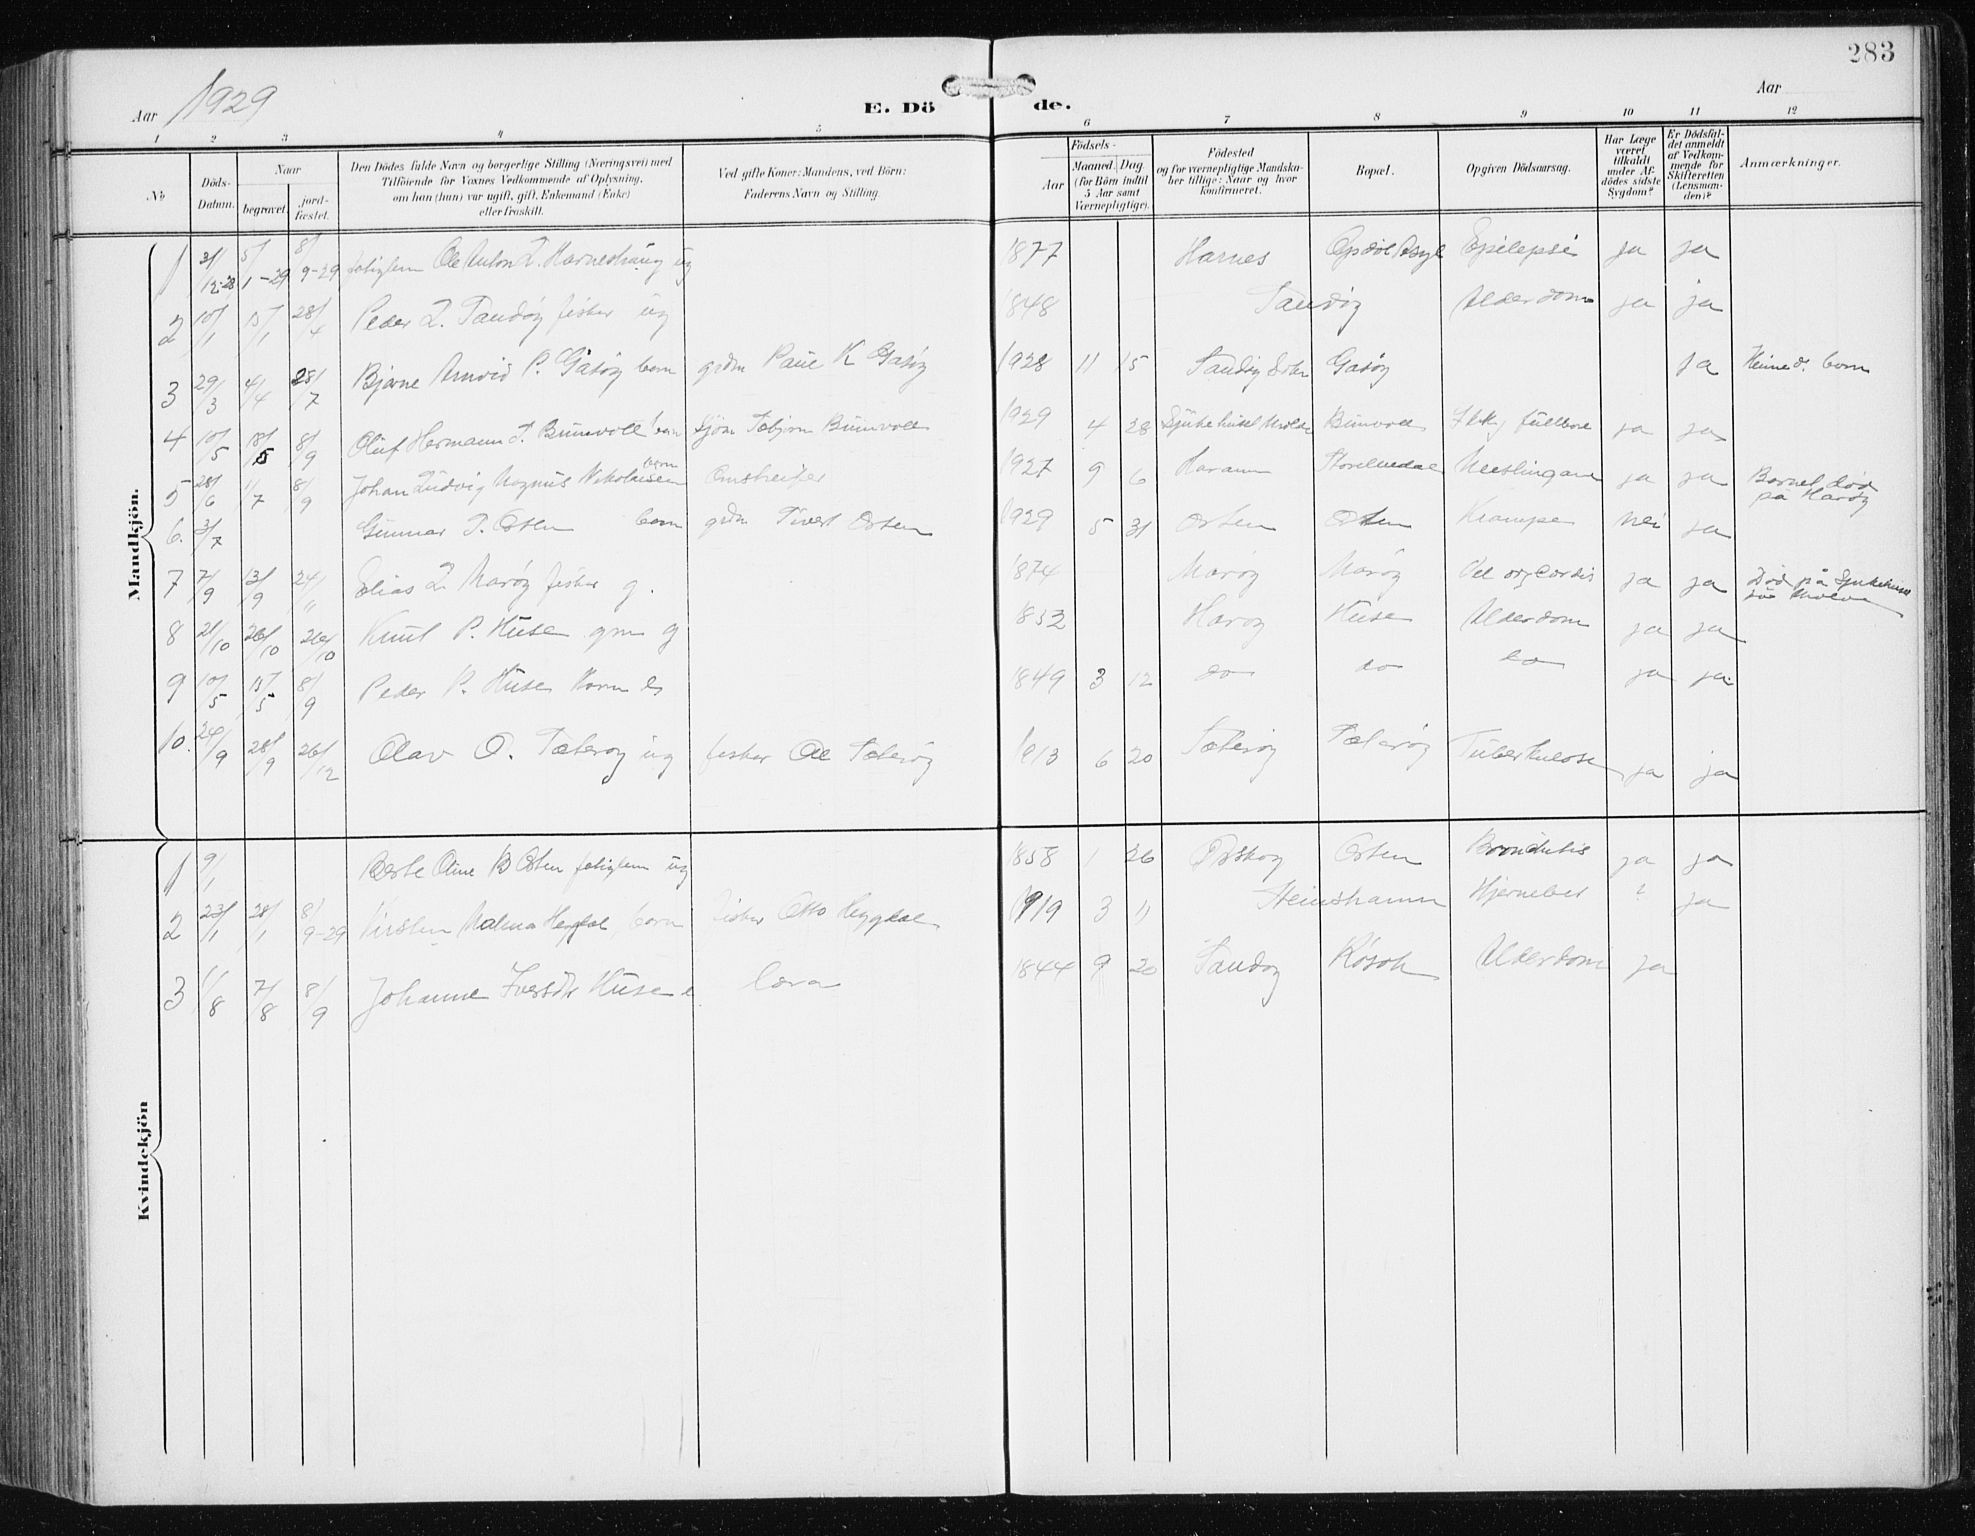 283
Aar 1929
E. Dö de.
Aar
1 2 3 4 5 6 7 8 9 10 11 12
No
Döds-Datum.
Naar
begravet.
jord-fæstet.
Den Dödes fulde Navn og borgerlige Stilling (Næringsvei) med
Tilföiende for Voxnes Vedkommende af Oplysning,
om han (hun) var ugift, gift, Enkemand (Enke)
eller fraskilt.
Ved gifte Koner: Mandens, ved Börn:
Faderens Navn og Stilling.
Födsels-
Aar
Maaned. Dag
(for Börn indtil
5 Aar samt
Værnepligtige).
Födested
og for værnepligtige Mandska-
ber tillige: Naar og hvor
konfirmeret.
Bopæl.
Opgiven Dödsaarsag.
Har Læge
været
tilkaldt
under Af-
dödes sidste
Sygdom?
Er Dödsfal-
det anmeldt
af Vedkom-
mende for
Skifteretten
(Lensman-
den)?
Anmærkninger.
Mandkjön.
1 31/12-28 5/1-29 8/9-29 fatiglem Ole Anton L. Harneshaug ug 1877 Harnes Opdøl Asyl Epilepsi ja ja
2 10/1 15/1 28/4 Peder L. Sandøy fisker ug 1848 Sandøy Alderdom ja ja
3 29/3 4/4 28/7 Bjarne Arnvid P. Gåsøy barn grdm Paul K Gåsøy 1928 11 15 Sandøy Gåsøy ja Heimed. barn
4 10/5 18/5 8/9 Oluf Hermann T. Buinvoll barn Tobjørn Buinvoll 1929 4 28 Sjukehuset Molde Buinvoll Ikkj fullbore ja ja
5 28/6 1/7 8/9 Johan Ludvig Magnus Nikolaisen barn Omstreifer 1927 9 6 Haram Meslingar ja ja Barnet død
på Harøy
6. 3/7 Gunnar S. Orten barn grdm Sivert Orten 1929 5 31 Orten Orten Krampe nei ja
7 7/9 13/9 24/11 Elias L Marøy fisker g. 1874 Marøy Marøy Vet org cordis ja ja Død på Sjukehuset
8 21/10 26/10 26/10 Knut P. Huse gm g 1852 Harøy Huse Alderdom ja ja
9 10/5 15/5 8/9 Peder P. Huse 1849 3 12 do do do ja ja
10. 24/9 28/9 26/12 Olav O. Sæterøy ug fisker Ole Sæterøy 1913 6 20 Sæterøy Sæterøy Tuberkulose ja ja
Kvindekjön
1 9/1 Berte Oline B Orten fatiglem ug 1858 1 26 Ørskog Orten Bronchitis ja ja
2 23/1 28/1 8/9-29 Kirsten Malma Heggdal barn fisker Otto Heggdal 1919 3 11 Steinshamn Hjernebet ? ja
3 1/8 7/8 8/9 Johanne Iversdtr Huse e 1844 9 20 Sandøy Røsok Alderdom ja